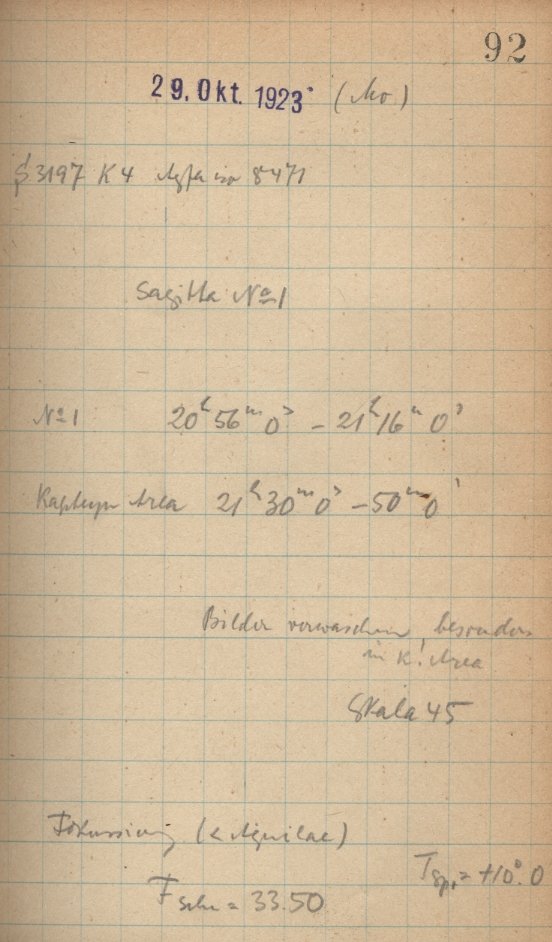 92
29. Okt. 1923 (Mo)
S 3197 K4 Agfa 8471
Sagitta №1
№1 20ʰ56ᵐ0ˢ – 21ʰ16ᵐ0ˢ
Kapteyn Area 21ʰ30ᵐ0ˢ – 50ᵐ0ˢ
Bilder verwaschen, besonders
in K. Area
Skala 45
Fokussierung ( Aquilae)
T sp. = +10°.0
F = 33.50